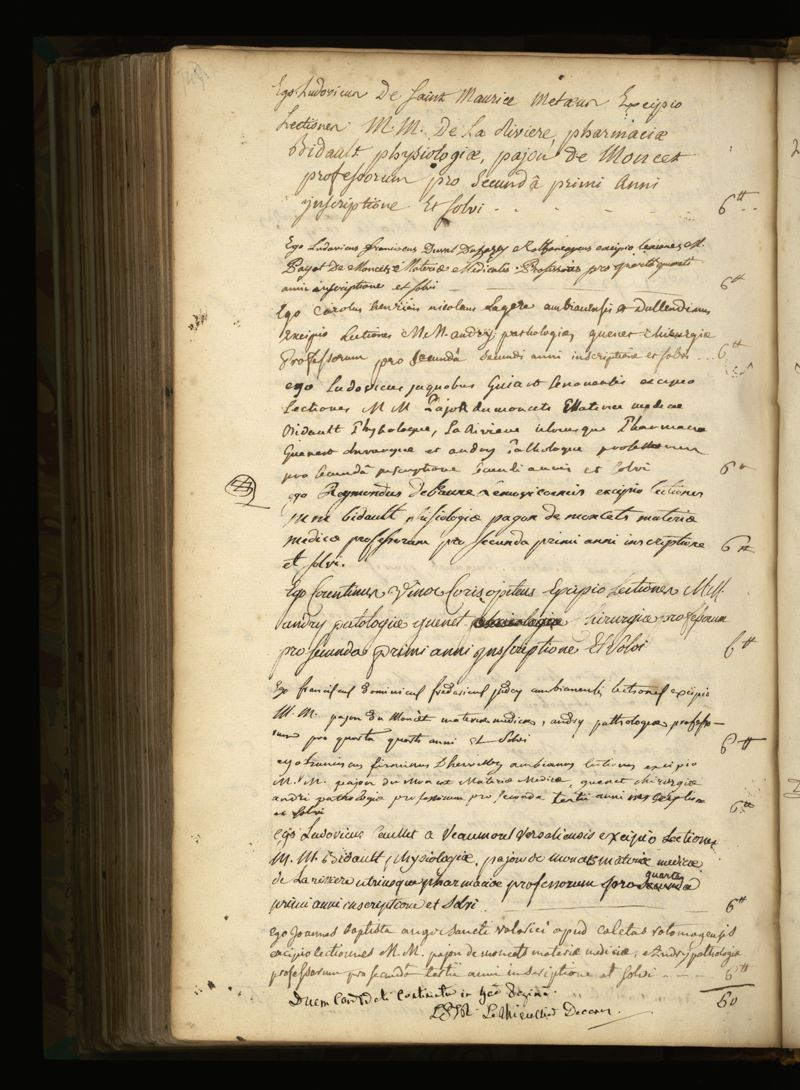 Ego Ludovicus De Saint Maurice Metæus Excipio
Lectiones M.M. De La Riviere, pharmaciæ
Bidault physiologiæ, pajon De Moncet
professorum pro Secundâ primi Anni
jnscriptione Et solvi . . . 6tt
Ego Ludovicus franciscus Duval Rothomagæus excipio lexiones M.
Payot De Moncets Materiæ Medicalis Professoris pro quartâ quarti
anni inscriptione et solvi 6tt
Ego Carolus henricus nicolaus Lagere ambianensis Dullendinus
Excipio Lectiones M.M. andry pathologiæ, quenet chirurgiæ
Professorum pro Secundâ Secundi anni inscriptione et solvi ... 6tt
ego Ludovicus jaquobus Guiart Senonensis excipio
Lectiones M M Pajon du moncets Materiæ medicæ
Bidault Physologiæ, La Riviere utriusque Pharmaciæ
Guenest et andry Pathologiæ professorum
pro Secundâ inscriptione Secundi annis et solvi 6tt
ego Raymondus deFaure Lemovicensis excipio lectiones
mm bidault phisiologiæ pagon de moncets materiæ
medicæ professorum pro secunda primi anni inscriptione 6tt
et solvi.
Ego Corentinus Vinoc Corisopitus Excipio Lectiones M.M.
andry patologiæ quenet chirurgiæ professorum
pro secunda primi anni jnscriptione Et Solvi 6tt
Ego franciscus Dominicus fredericus judcy ambianensis lectiones excipio
M.M. pajon du Moncèt materiæ medicæ, andry pathologiæ professo-
rum pro quarta quarti anni Et Solvi 6tt
ego franciscus firminus Dhervilley ambianus lectiones excipio
M.M. pajon du moncet Materiæ Medicæ, quenet chirurgiæ
andri pathologiæ professorum pro secunda tertii anni inscriptione 6tt
et solvi
Ego Ludovicus Caullet a Veaumorel Versaliensis excipio Lectiones
M.M. Bidault physiologiæ, pajon de moncets materiæ medicæ
de La riviere utriusque pharmaciæ professorum pro quarta
primi anni inscriptione et Solvi 6tt
ego joannes baptista angot sancti valerici apud caletas rotomagensis
excipio lectiones M.M. pajon de moncets materiæ medicæ, Andry pathologiæ
professorum pro secundâ tertii anni inscriptione et solvi 6tt
in hac pagina. 60
Le Thieullier Decan.